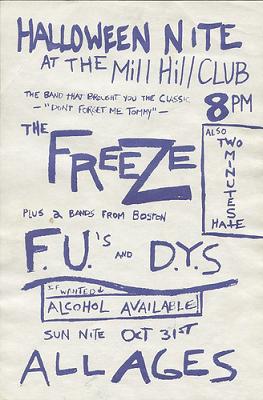 HALLOWEEN NITE
AT THE Mill Hill CLUB
THE BAND THAT BROUGHT YOU THE CLASSIC
-"DONT FORGET ME TOMMY"-
8 PM
THE
FREEZE
ALSO
TWO
MINUTES
HATE
PLUS 2 BANDS FROM BOSTON
F.U.'s AND D.Y.S
IF WANTED
ALCOHOL AVAILABLE
SUN NITE OCT 31ST
ALL AGES